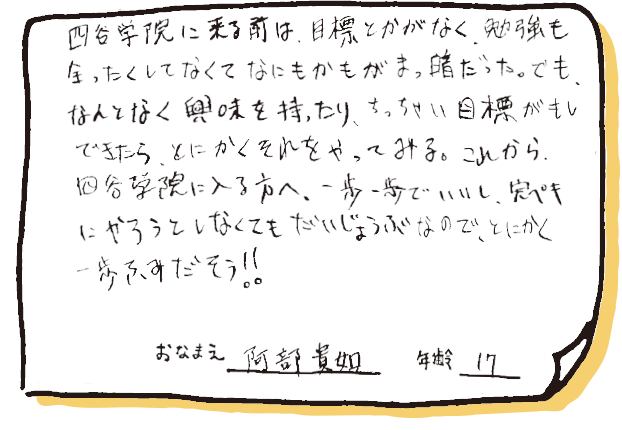 四谷学院に来る前は、目標とかがなく、勉強も
全ったくしてなくてなにもかもがまっ暗だった。でも、
なんとなく興味を持ったり、ちっちゃい目標がもし
できたら、とにかくそれをやってみる。これから、
四谷学院に入る方へ、一歩一歩でいいし、完ペキ
にやろうとしなくてもだいじょうぶなので、とにかく
一歩ふみだそう!!
おなまえ 阿部貴姐 年齢 17